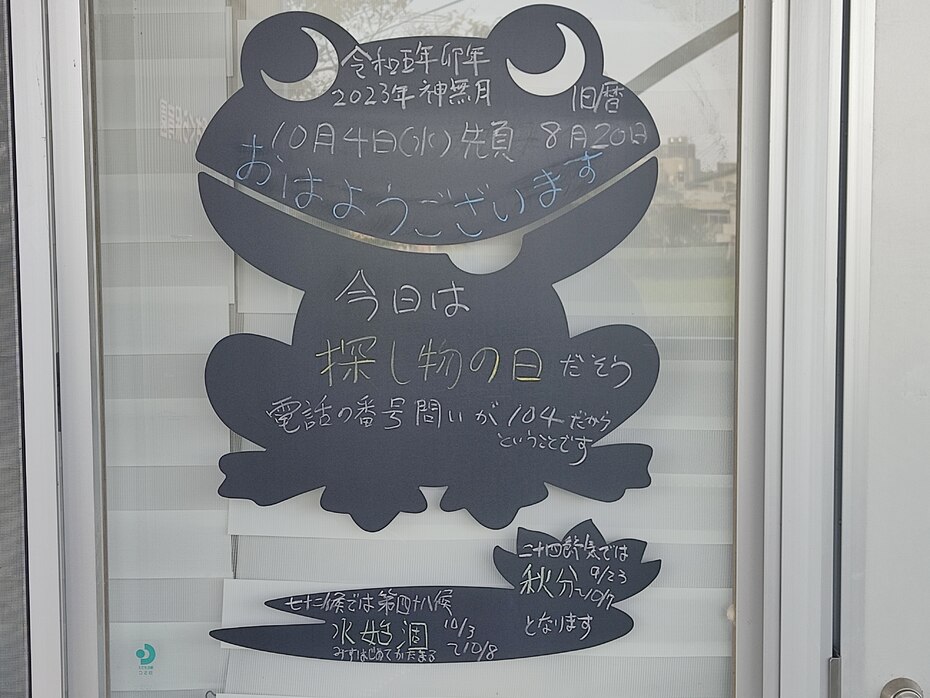 令和五年卯年
2023年 神無月
旧暦
10月4日(水)先負 8月20日
おはようございます
今日は
探し物の日だそう
電話の番号問いが104だから
ということです
二十四節気では
秋分 9/23
~10/7
となります
七十二候では第四十八候
水始涸 10/3
~10/8
みずはじめてかたまる